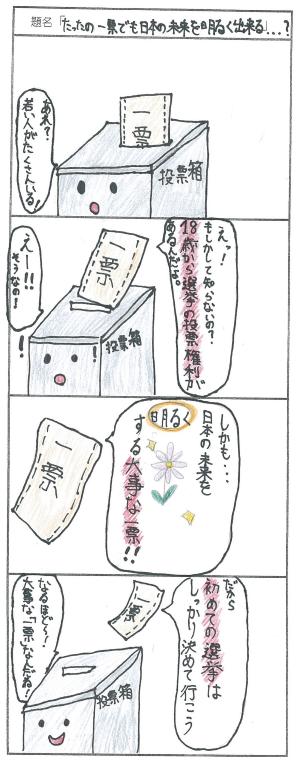 題名「たったの一票でも日本の未来を明るく出来る」…?
一票
投票箱
あれ?
若い人が
たくさんいる
えっ!
もしかして知らないの?
18歳から選挙の投票権利が
あるんだよ。
一票
投票箱
えー!!
そうなの!
!
!
しかも・・・
日本の未来を
明るく
する大事な一票!!
一票
だから
初めての選挙は
しっかり決めて行こう
一票
投票箱
なるほど〜!
大事な「一票」なんだね!